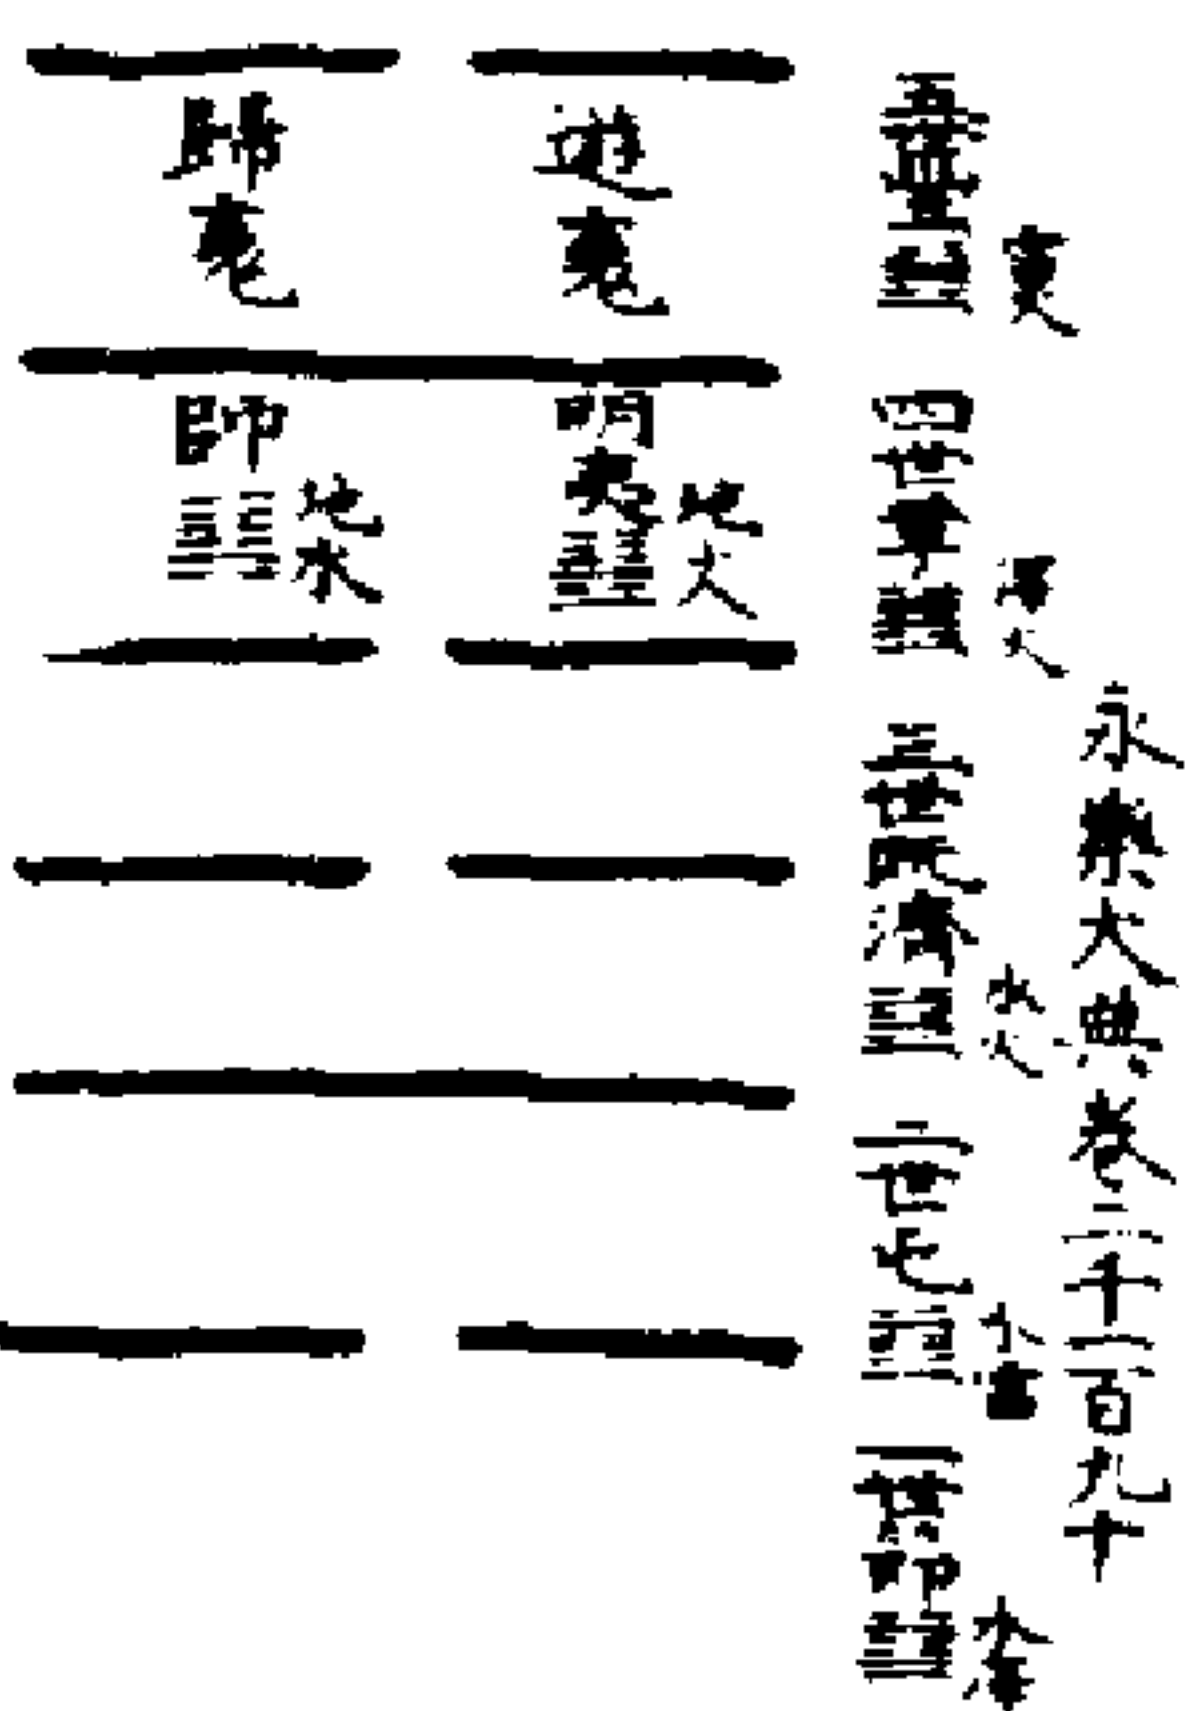 永樂大典卷二千一百九十
五世豐 雷火 四世革 澤火 三世既濟 水火 二世屯 水雷 一世節 水澤
遊魂 明夷 地火
歸魂 師 地水